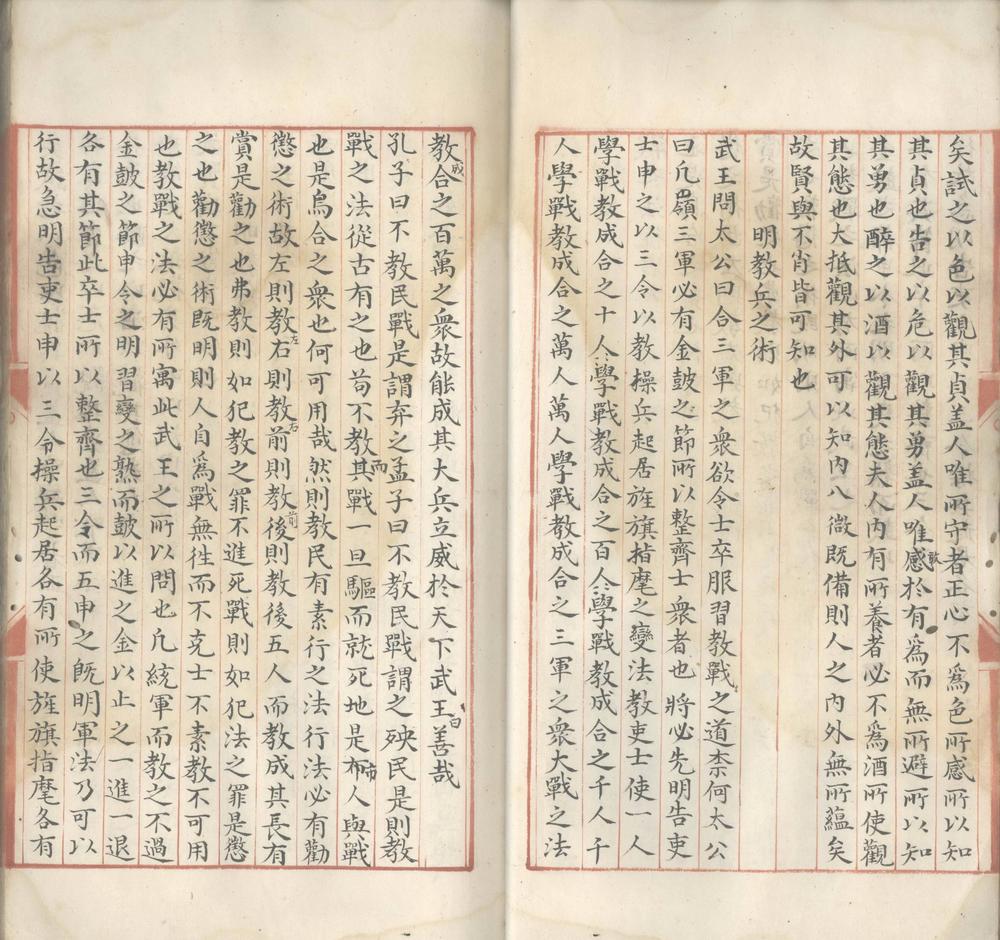 矣試之以色以觀其貞盖人唯所守者正心不爲色所感所以知
其貞也告之以危以觀其勇盖人唯感敢於有爲而無所避所以知
其勇也醉之以酒以觀其態夫人內有所養者必不爲酒所使觀
其態也大抵觀其外可以知內八徵既備則人之內外無所蘊矣
故賢與不肖皆可知也
明教兵之術
武王問太公曰合三軍之衆欲令士卒服習教戰之道柰何太公
曰凢嶺三軍必有金鼓之節所以整齊士衆者也將必先明告吏
士申之以三令以教操兵起居旌旗指麾之變法教吏士使一人
學戰教成合之十人學戰教成合之百人學戰教成合之千人千
人學戰教成合之萬人萬人學戰教成合之三軍之衆大戰之法
教成合之百萬之衆故能成其大兵立威於天下武王曰善哉
孔子曰不教民戰是謂弃之孟子曰不教民戰謂之殃民是則教
戰之法從古有之也苟不教其而戰一旦驅而就死地是布市人與戰
也是烏合之衆也何可用哉然則教民有素行之法行法必有勸
懲之術故左則教左右則教右前則教前後則教後五人而教成其長有
賞是勸之也弗教則如犯教之罪不進死戰則如犯法之罪是懲
之也勸懲之術既明則人自爲戰無徃而不克士不素教不可用
也教戰之法必有所寓此武王之所以問也凢統軍而教之不過
金鼓之節申令之明習變之熟而鼓以進之金以止之一進一退
各有其節此卒士所以整齊也三令而五申之旣明軍法乃可以
行故急明告吏士申以三令操兵起居各有所使旌旗指麾各有